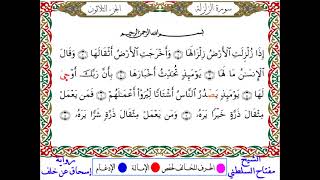 سورة الزلزلة
الجزء الثلاثون
بسم الله الرحمن الرحيم
إِذَا زُلْزِلَتِ ٱلْأَرْضُ زِلْزَالَهَا ۝ وَأَخْرَجَتِ ٱلْأَرْضُ أَثْقَالَهَا ۝ وَقَالَ
ٱلْإِنسَٰنُ مَا لَهَا ۝ يَوْمَئِذٍ تُحَدِّثُ أَخْبَارَهَا ۝ بِأَنَّ رَبَّكَ أَوْحَىٰ
لَهَا ۝ يَوْمَئِذٍ يَصْدُرُ ٱلنَّاسُ أَشْتَاتًا لِّيُرَوْا۟ أَعْمَٰلَهُمْ ۝ فَمَن يَعْمَلْ
مِثْقَالَ ذَرَّةٍ خَيْرًا يَرَهُۥ ۝ وَمَن يَعْمَلْ مِثْقَالَ ذَرَّةٍ شَرًّا يَرَهُۥ ۝
الشيخ
مفتاح السلطني
الحرف المخالف لحفص
الإمالة
الإدغام
رواية
إسحاق عن خلف